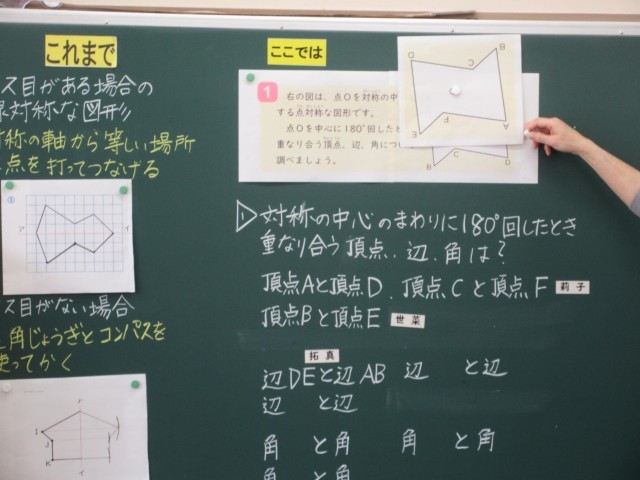 これまで
ス目がある場合の
対称な図形
対称の軸から等しい場所
点を打ってつなげる
①
ア
イ
ス目がない場合
角じょうぎとコンパスを
使ってかく
ここでは
1
右の図は、点Oを対称の中
する点対称な図形です。
点Oを中心に180°回したと
重なり合う頂点、辺、角につ
調べましょう。
D
B
C
F
E
A
B
C
D
① 対称の中心のまわりに180°回したとき
重なり合う頂点、辺、角は?
頂点Aと頂点D、頂点Cと頂点F 莉子
頂点Bと頂点E 世菜
拓真
辺DEと辺AB 辺 と辺
辺 と辺
角 と角 角 と角
角 と角